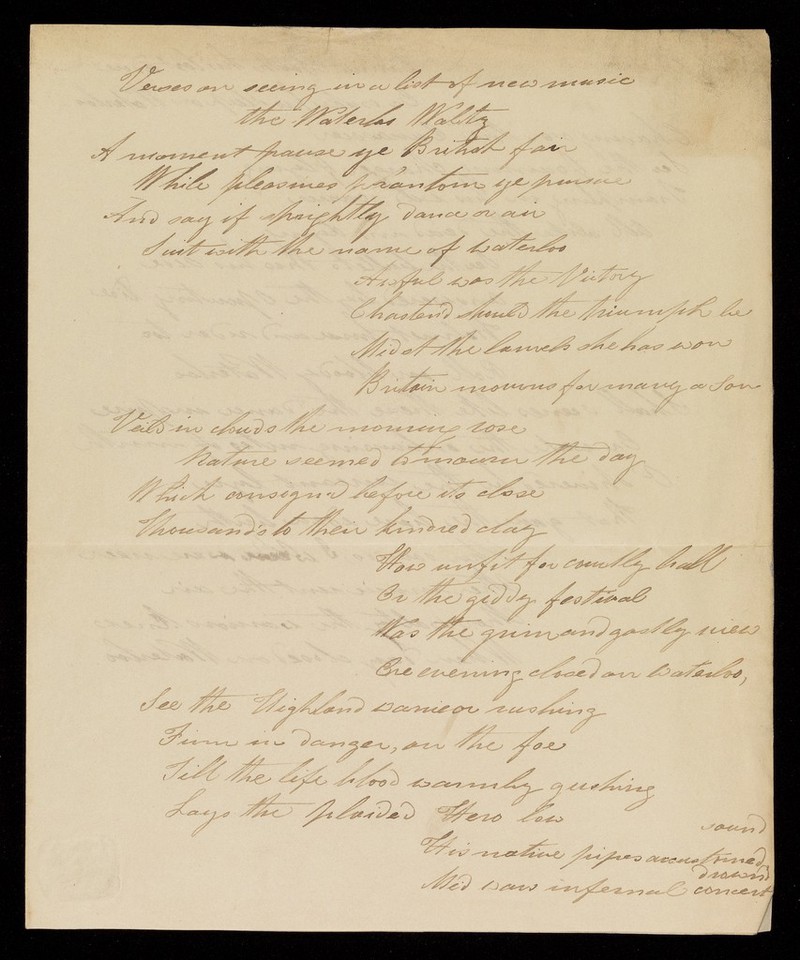 Verses on seeing in a list of new music
the Waterloo Waltz
A moment pause ye British fair
While pleasures phantom ye pursue
And say if sprightly dance or air
Suit with the name of Waterloo
Awful was the Victory
Chastend should the triumph be
Midst the laurels she has won
Britain mourns for many a Son
Veild in clouds the morning rose
Nature seemed to mourn the day
Which consignd before its close
Thousands to their kindred clay
How unfit for courtly ball
Or the giddy festival
Was the grim and gastly view
Ere evening closed on Waterloo,
See the Highland warrior rushing
Firm in danger, on the foe
Till the life blood warmly gushing
Lays the plaided Hero low
sound
His native pipes accustomed,
drownd
Mid wars infernal concert